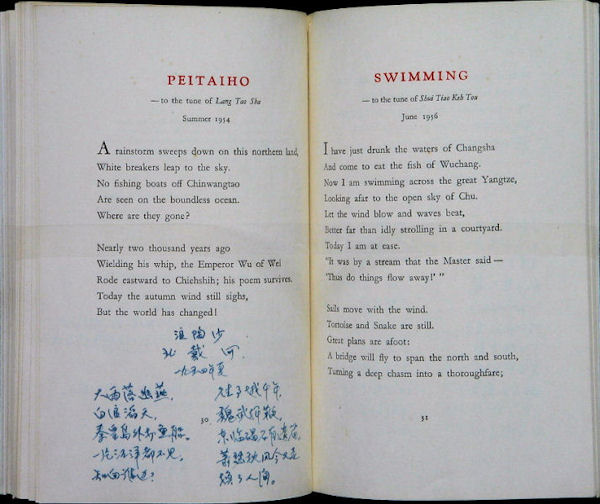 PEITAIHO
— to the tune of Lang Tao Sha
Summer 1954
A rainstorm sweeps down on this northern land,
White breakers leap to the sky.
No fishing boats off Chinwangtao
Are seen on the boundless ocean.
Where are they gone?
Nearly two thousand years ago
Wielding his whip, the Emperor Wu of Wei
Rode eastward to Chiehshih; his poem survives.
Today the autumn wind still sighs,
But the world has changed!
浪淘沙
北戴河
一九五四年夏
大雨落幽燕,
白浪滔天,
秦皇岛外打鱼船。
一片汪洋都不见,
知向谁边?
往事越千年,
魏武挥鞭,
东临碣石有遗篇。
萧瑟秋风今又是
换了人间。
30
SWIMMING
— to the tune of Shui Tiao Keh Tou
June 1956
I have just drunk the waters of Changsha
And come to eat the fish of Wuchang.
Now I am swimming across the great Yangtze,
Looking afar to the open sky of Chu.
Let the wind blow and waves beat,
Better far than idly strolling in a courtyard.
Today I am at ease.
"It was by a stream that the Master said —
'Thus do things flow away!' "
Sails move with the wind.
Tortoise and Snake are still.
Great plans are afoot:
A bridge will fly to span the north and south,
Turning a deep chasm into a thoroughfare;
31